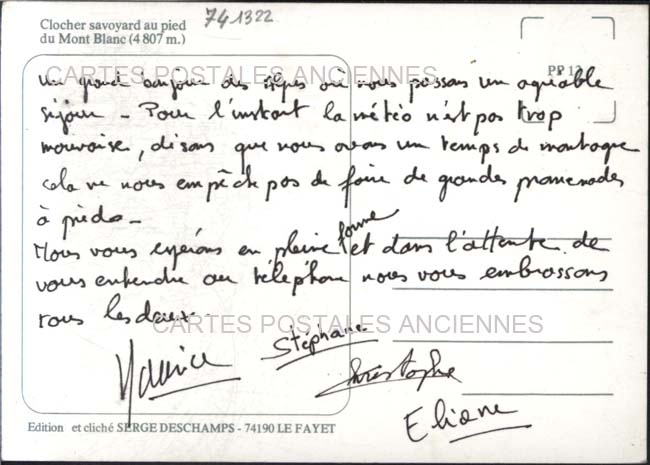 Clocher savoyard au pied
du Mont Blanc (4 807 m.)
741322
PP 13
CARTES POSTALES ANCIENNES
un grand bonjour des Alpes où nous passons un agréable
séjour - Pour l'instant la météo n'est pas trop
mauvaise, disons que nous avons un temps de montagne
cela ne nous empêche pas de faire de grandes promenades
à pieds -
Nous vous espérons en pleine forme et dans l'attente de
vous entendre au téléphone nous vous embrassons
tous les deux.
CARTES POSTALES ANCIENNES
Maurice Stéphane
Christophe
Eliane
Edition et cliché SERGE DESCHAMPS - 74190 LE FAYET